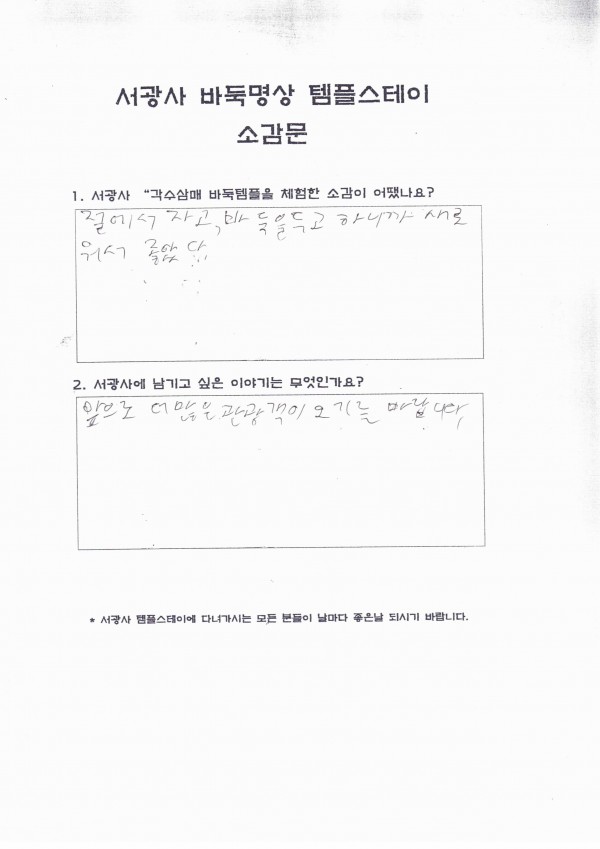 서광사 바둑명상 템플스테이
소감문
1. 서광사 “각수삼매 바둑템플을 체험한 소감이 어땠나요?
절에서 자고, 바둑을두고 하니까 새로
워서 좋았다!!
2. 서광사에 남기고 싶은 이야기는 무엇인가요?
앞으로 더많은 관광객이 오기를 바랍니다.
* 서광사 템플스테이에 다녀가시는 모든 분들이 날마다 좋은날 되시기 바랍니다.